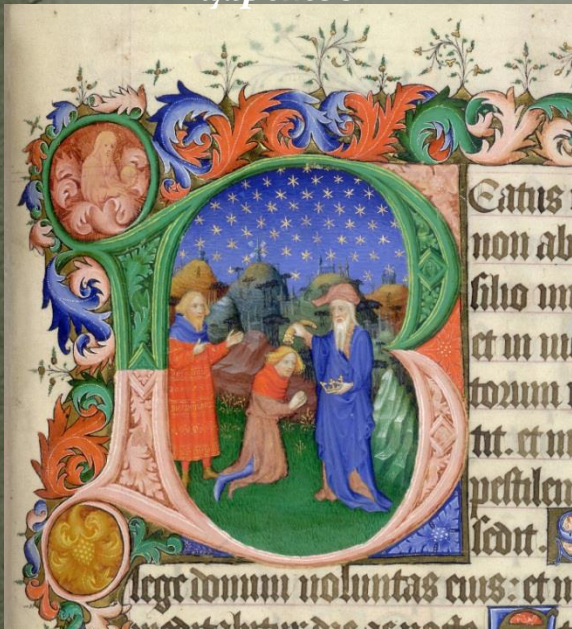 BEatus
non ab
silio im
et in ui
torum
tit. et in
pestilen
sedit.
lege domini uoluntas eius: et in